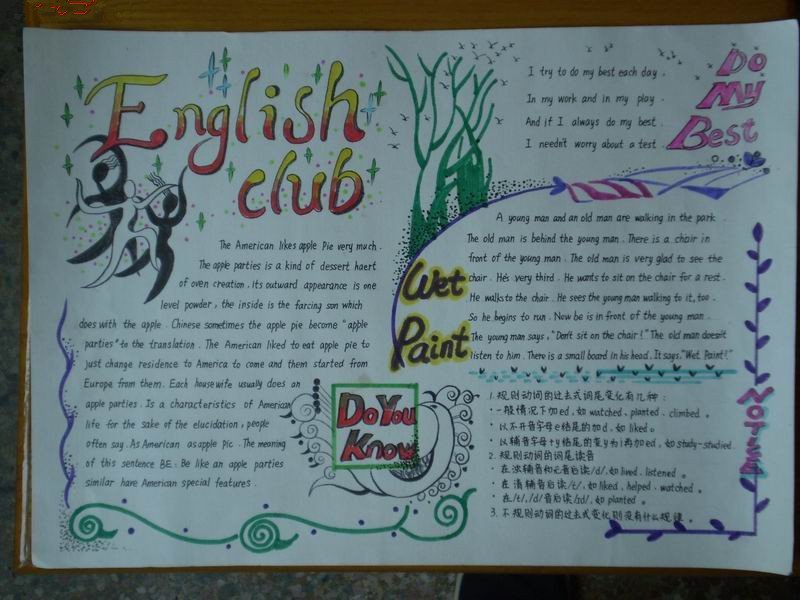 English
club
The American likes apple Pie very much.
The apple parties is a kind of dessert haert
of oven creation, its outward appearance is one
level powder, the inside is the farcing son which
does with the apple. Chinese sometimes the apple pie become "apple
parties" to the translation. The American liked to eat apple pie to
just change residence to America to come and them started from
Europe from them. Each housewife usually does an
apple parties. Is a characteristics of American
life for the sake of the elucidation, people
often say. As American as apple pic. The meaning
of this sentence BE: Be like an apple parties
similar have American special features.
Do You
Know
Do
My
Best
I try to do my best each day.
In my work and in my play.
And if I always do my best.
I needn't worry about a test.
Wet
Paint
A young man and an old man are walking in the park.
The old man is behind the young man. There is a chair in
front of the young man. The old man is very glad to see the
chair. He's very third. He wants to sit on the chair for a rest.
He walks to the chair. He sees the young man walking to it, too.
So he begins to run. Now be is in front of the young man.
The young man says, "Don't sit on the chair!" The old man doesn't
listen to him. There is a small board in his head. It says, "Wet Paint!"
1. 规则动词的过去式词尾变化有几种:
·一般情况下加ed,如watched、planted、climbed。
·以不开音字母e结尾的加d,如liked。
·以辅音字母+y结尾的变y为i再加ed,如study-studied.
2. 规则动词的词尾读音
·在浊辅音和元音后读/d/,如lived、listened。
·在清辅音后读/t/,如liked、helped、watched。
·在/t/,/d/音后读/ɪd/,如planted。
3. 不规则动词的过去式变化则没有什么规律。